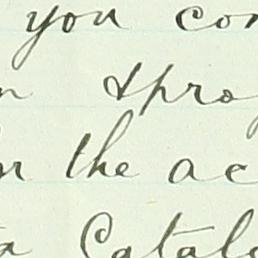 you con
n & pro
r the ac
a Catal